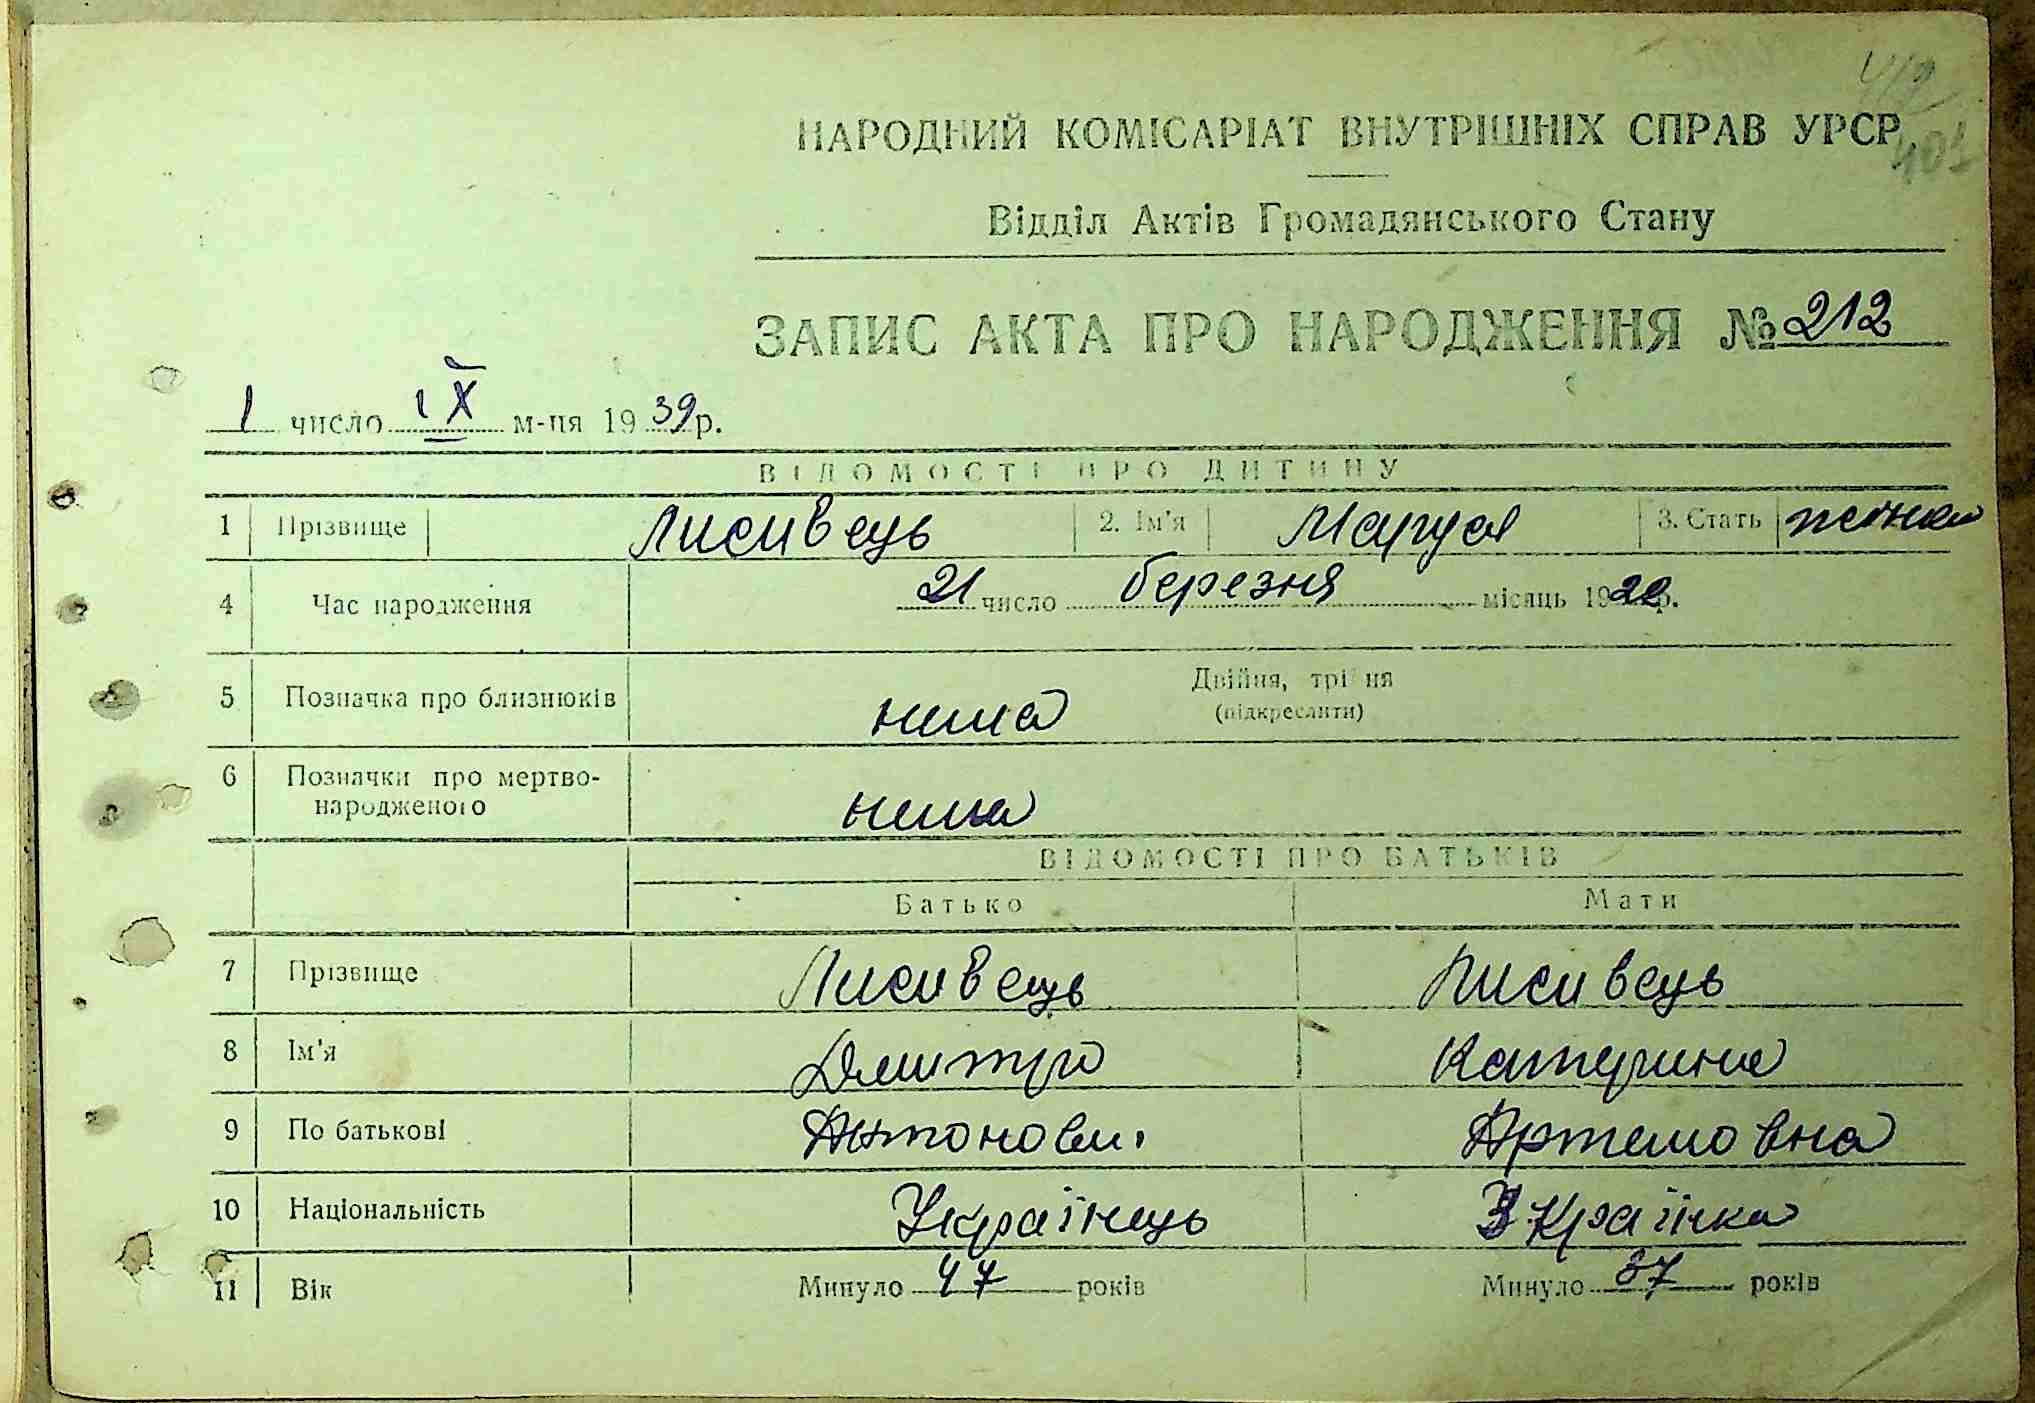 412
401
НАРОДНИЙ КОМІСАРІАТ ВНУТРІШНІХ СПРАВ УРСР
Відділ Актів Громадянського Стану
ЗАПИС АКТА ПРО НАРОДЖЕННЯ № 212
1 число IX м-ця 1939 р.
ВІДОМОСТІ ПРО ДИТИНУ
1 Прізвище Лисивець 2. Ім'я Маруся 3. Стать жінка
4 Час народження 21 число березня місяць 1922 р.
5 Позначка про близнюків нима Двійня, трійня
(підкреслити)
6 Позначки про мертво-
народженого нима
ВІДОМОСТІ ПРО БАТЬКІВ
Батько Мати
7 Прізвище Лисивець Лисивець
8 Ім'я Дмитро Катерина
9 По батькові Антонови. Артемовна
10 Національність Українець Українка
11 Вік Минуло 47 років Минуло 37 років